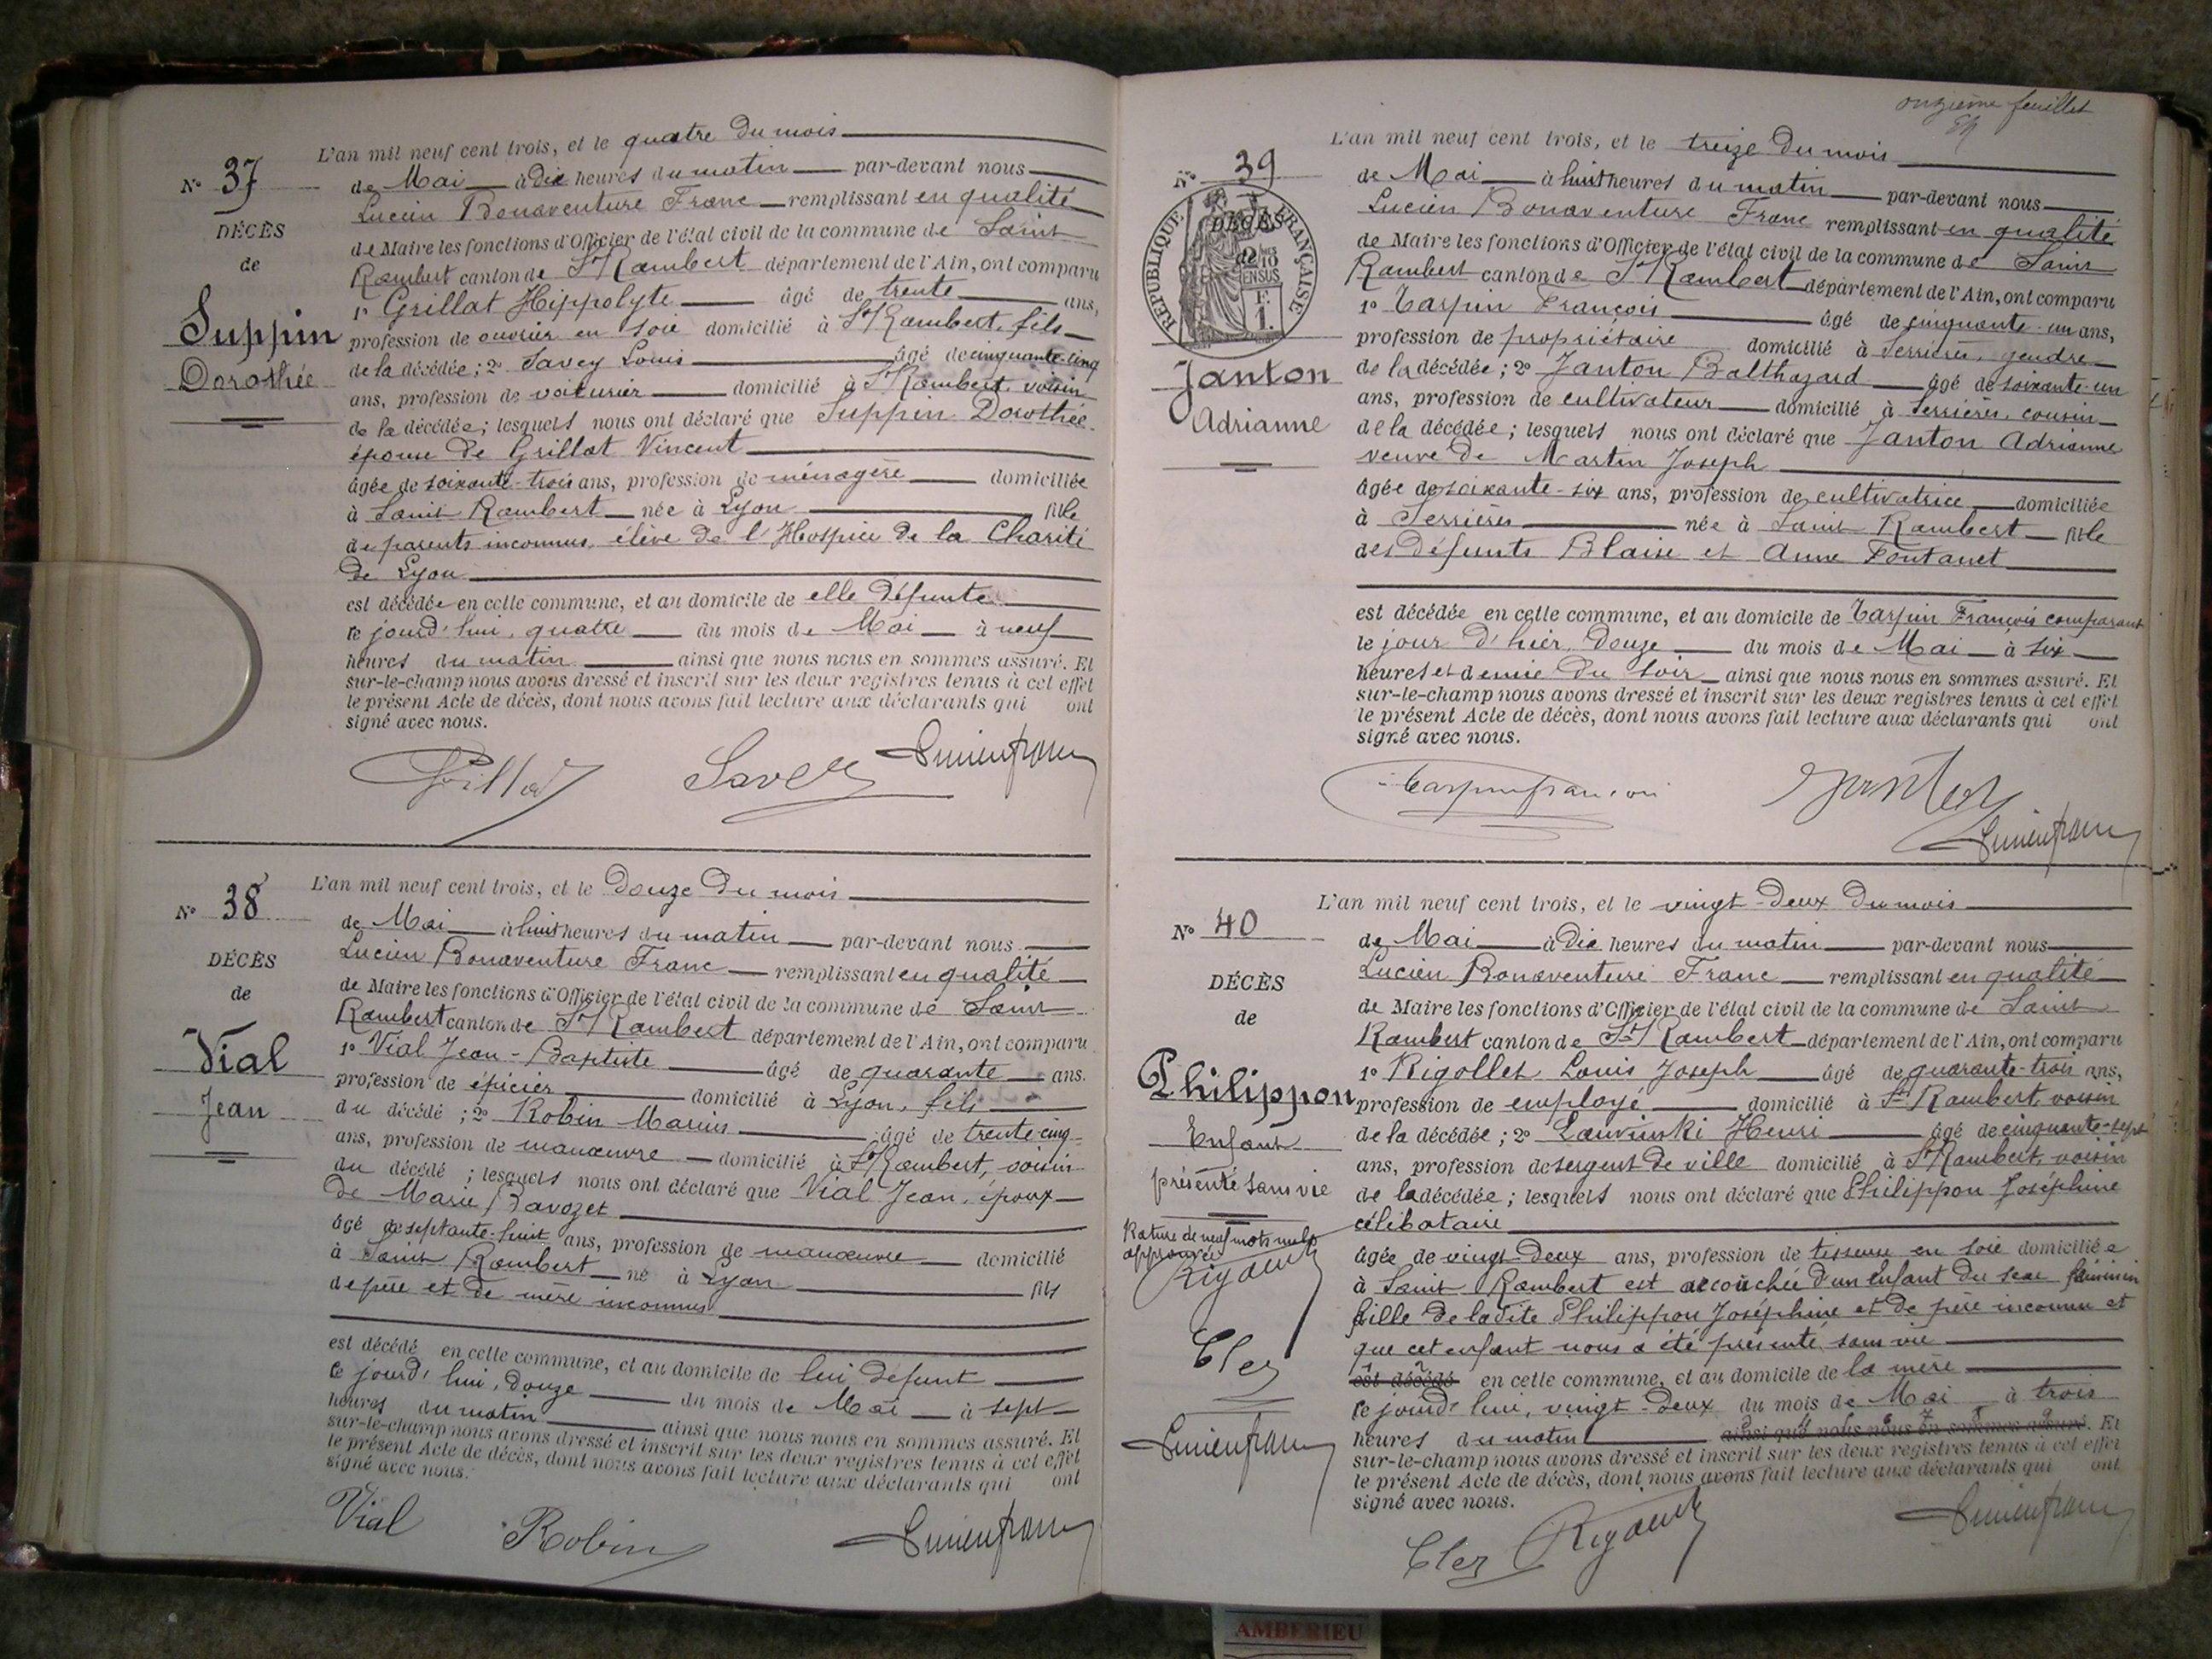 N° 37
DÉCÈS
de
Suppin
Dorothée
L'an mil neuf cent trois, et le quatre du mois
de Mai à dix heures du matin par-devant nous
Lucien Bonaventure Franc remplissant en qualité
de Maire les fonctions d'Officier de l'état civil de la commune de Saint
Rambert canton de St Rambert département de l'Ain, ont comparu
1° Grillat Hippolyte âgé de trente ans,
profession de ouvrier en soie domicilié à St Rambert, fils
de la décédée; 2° Savey Louis âgé de cinquante-cinq
ans, profession de voiturier domicilié à St Rambert, voisin
de la décédée; lesquels nous ont déclaré que Suppin Dorothée
épouse de Grillat Vincent
âgée de soixante-trois ans, profession de ménagère domiciliée
à Saint Rambert née à Lyon fille
de parents inconnus, élève de l'Hospice de la Charité
de Lyon
est décédée en cette commune, et au domicile de elle défunte
ce jourd'hui, quatre du mois de Mai à neuf
heures du matin ainsi que nous nous en sommes assuré. Et
sur-le-champ nous avons dressé et inscrit sur les deux registres tenus à cet effet
le présent Acte de décès, dont nous avons fait lecture aux déclarants qui ont
signé avec nous.
Grillat Savey Lucien franc
N° 38
DÉCÈS
de
Vial
Jean
L'an mil neuf cent trois, et le douze du mois
de Mai à huit heures du matin par-devant nous
Lucien Bonaventure Franc remplissant en qualité
de Maire les fonctions d'Officier de l'état civil de la commune de Saint
Rambert canton de St Rambert département de l'Ain, ont comparu
1° Vial Jean-Baptiste âgé de quarante ans.
profession de épicier domicilié à Lyon, fils
du décédé; 2° Robin Marius âgé de trente-cinq
ans, profession de manœuvre domicilié à St Rambert, voisin
du décédé; lesquels nous ont déclaré que Vial Jean, époux
de Marie Ravozet
âgé de septante-huit ans, profession de manœuvre domicilié
à Saint Rambert né à Lyon fils
de père et de mère inconnus
est décédé en cette commune, et au domicile de lui défunt
ce jourd'hui, douze du mois de Mai à sept
heures du matin ainsi que nous nous en sommes assuré. Et
sur-le-champ nous avons dressé et inscrit sur les deux registres tenus à cet effet
le présent Acte de décès, dont nous avons fait lecture aux déclarants qui ont
signé avec nous.
Vial Robin Lucien franc
onzième feuillet
N° 39
DÉCÈS
de
RÉPUBLIQUE FRANÇAISE
Janton
Adrianne
L'an mil neuf cent trois, et le treize du mois
de Mai à huit heures du matin par-devant nous
Lucien Bonaventure Franc remplissant en qualité
de Maire les fonctions d'Officier de l'état civil de la commune de Saint
Rambert canton de St Rambert département de l'Ain, ont comparu
1° Tarpin François âgé de cinquante-un ans,
profession de propriétaire domicilié à Serrières, gendre
de la décédée; 2° Janton Balthazard âgé de soixante-un
ans, profession de cultivateur domicilié à Serrières, cousin
de la décédée; lesquels nous ont déclaré que Janton Adrianne
veuve de Martin Joseph
âgée de soixante-six ans, profession de cultivatrice domiciliée
à Serrières née à Saint Rambert fille
des défunts Blaise et Anne Fontanet
est décédée en cette commune, et au domicile de Tarpin François comparant
le jour d'hier, douze du mois de Mai à six
heures et demie du soir ainsi que nous nous en sommes assuré. Et
sur-le-champ nous avons dressé et inscrit sur les deux registres tenus à cet effet
le présent Acte de décès, dont nous avons fait lecture aux déclarants qui ont
signé avec nous.
Tarpin françois Janton
Lucien franc
N° 40
DÉCÈS
de
Philippon
Enfant
présenté sans vie
Rature de neuf mots nuls
approuvée
Rigollet
Cler
Lucien franc
L'an mil neuf cent trois, et le vingt-deux du mois
de Mai à dix heures du matin par-devant nous
Lucien Bonaventure Franc remplissant en qualité
de Maire les fonctions d'Officier de l'état civil de la commune de Saint
Rambert canton de St Rambert département de l'Ain, ont comparu
1° Rigollet Louis Joseph âgé de quarante-trois ans,
profession de employé domicilié à St Rambert, voisin
de la décédée; 2° Henri âgé de cinquante-sept
ans, profession de sergent de ville domicilié à St Rambert, voisin
de la décédée; lesquels nous ont déclaré que Philippon Joséphine
célibataire
âgée de vingt-deux ans, profession de tisseuse en soie domiciliée
à Saint Rambert est accouchée d'un enfant du sexe féminin
fille de ladite Philippon Joséphine et de père inconnu et
que cet enfant nous a été présenté sans vie
est décédé en cette commune, et au domicile de la mère
ce jourd'hui, vingt-deux du mois de Mai à trois
heures du matin ainsi que nous nous en sommes assuré. Et
sur-le-champ nous avons dressé et inscrit sur les deux registres tenus à cet effet
le présent Acte de décès, dont nous avons fait lecture aux déclarants qui ont
signé avec nous.
Cler Rigollet Lucien franc
AMBERIEU